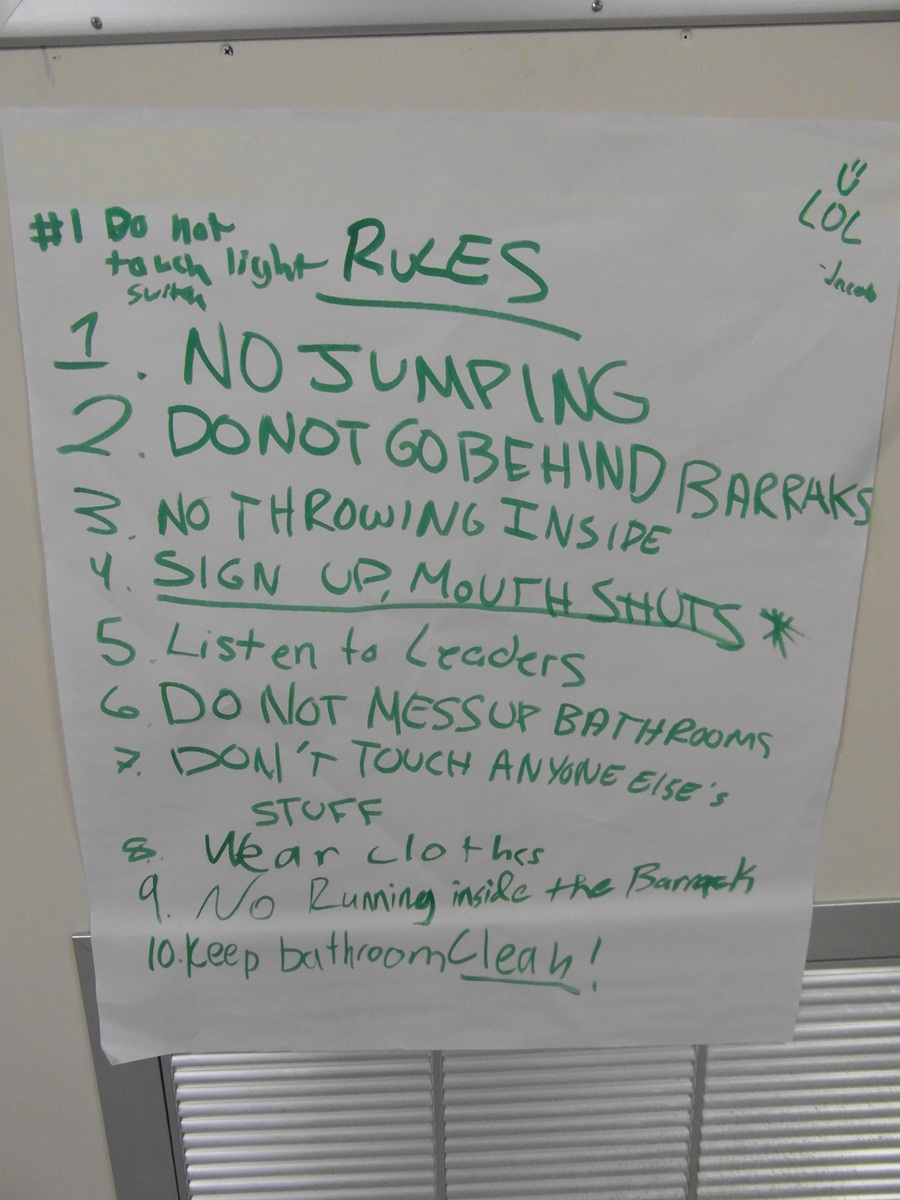 #1 Do not
touch light
switch
RULES
LOL
Jacob
1. NO JUMPING
2. DO NOT GO BEHIND BARRAKS
3. NO THROWING INSIDE
4. SIGN UP, MOUTH SHUTS *
5. Listen to Leaders
6. DO NOT MESS UP BATHROOMS
7. DON'T TOUCH ANYONE ELSE'S
STUFF
8. Wear clothes
9. No Running inside the Barrack
10. Keep bathroom Clean!